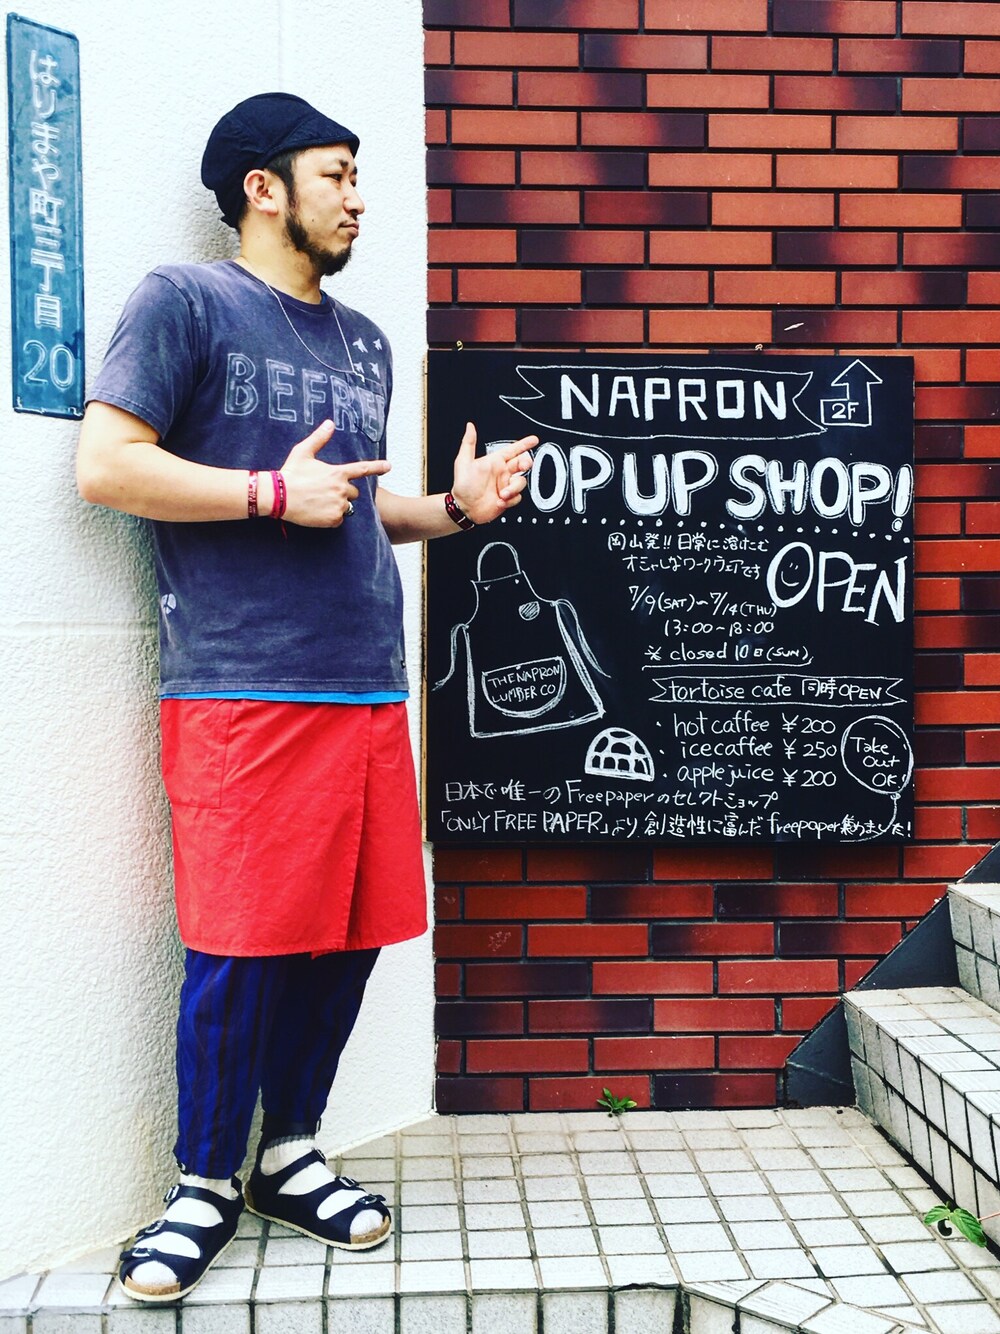 はりまや町三丁目 20
BEFREE
NAPRON
2F
POP UP SHOP!
岡山発!! 日常に溶けこむ
オシャレなワークウェアです
OPEN
7/9(SAT)〜7/14(THU)
13:00〜18:00
※ closed 10日(SUN)
THE NAPRON
LUMBER CO
tortoise cafe 同時OPEN
・hot caffee ¥200
・ice caffee ¥250
・apple juice ¥200
Take
Out
OK!
日本で唯一のFreepaperのセレクトショップ
「ONLY FREE PAPER」より 創造性に富んだ freepaper集めました!